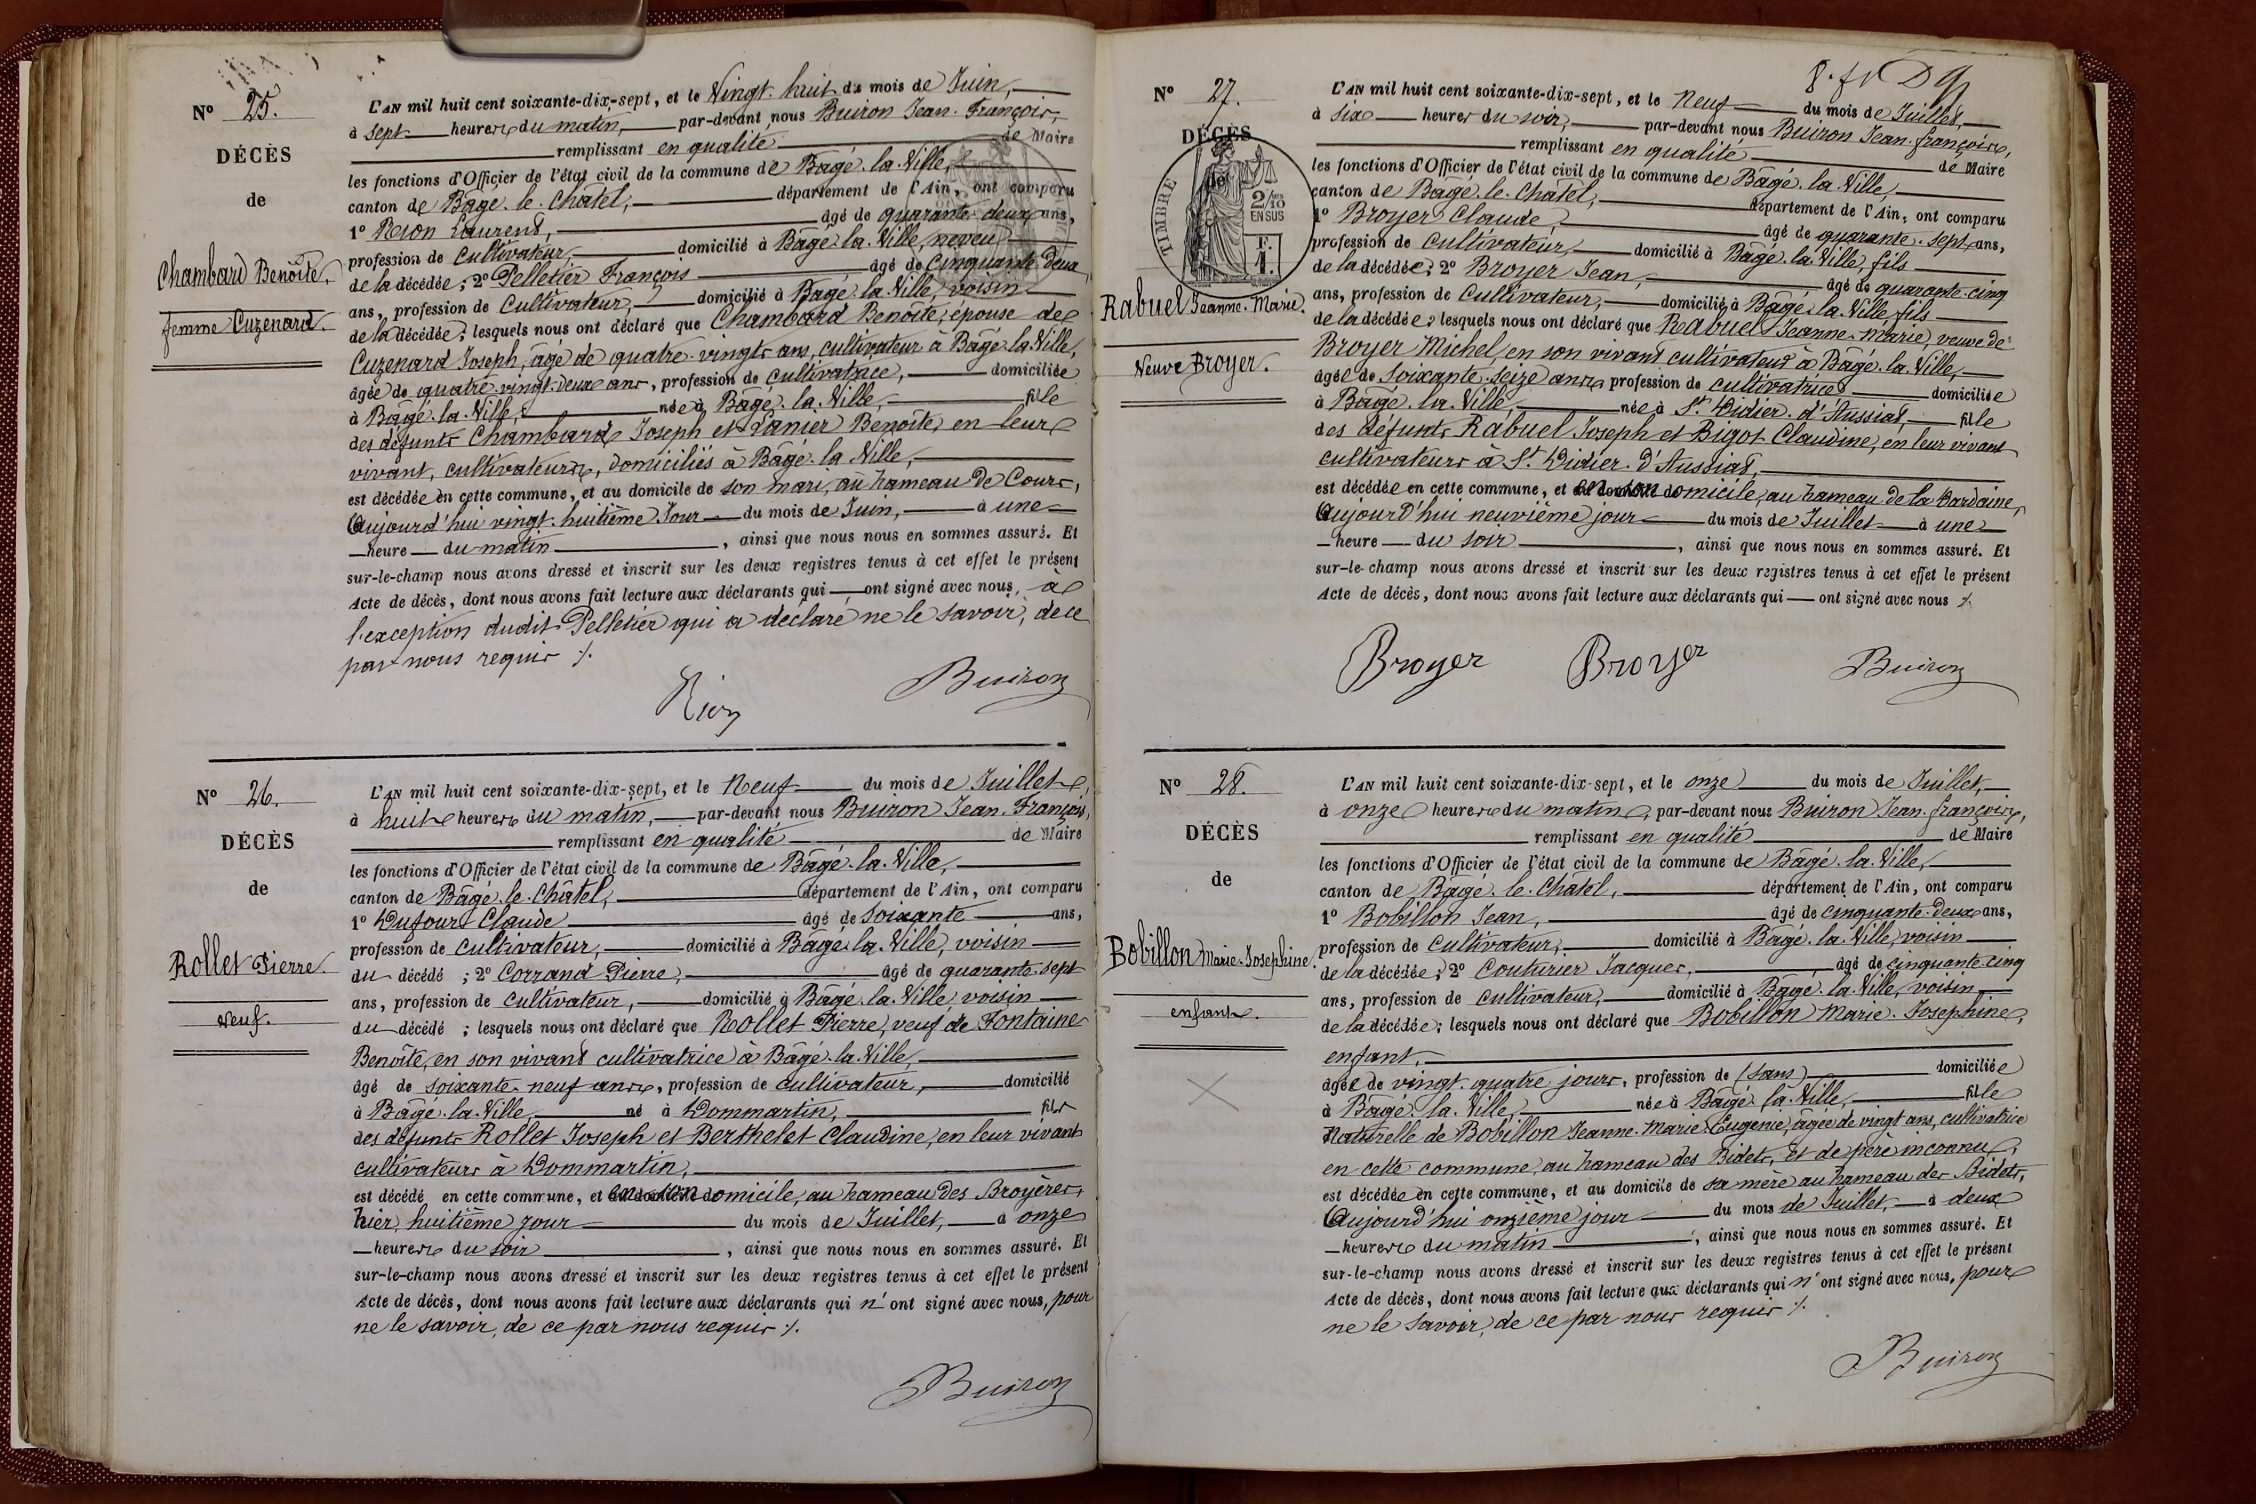 N° 25.
DÉCÈS
de
Chambard Benoîte.
femme Cuzenard.
L'AN mil huit cent soixante-dix-sept, et le Vingt-huit du mois de Juin,
à sept heures du matin, par-devant nous Buiron Jean-François,
remplissant en qualité de Maire
les fonctions d'Officier de l'état civil de la commune de Bâgé-la-Ville,
canton de Bâgé-le-Châtel, département de l'Ain, ont comparu
1° Rion Laurent, âgé de quarante-deux ans,
profession de cultivateur, domicilié à Bâgé-la-Ville, neveu
de la décédée; 2° Pelletier François âgé de cinquante-deux
ans, profession de cultivateur, domicilié à Bâgé-la-Ville, voisin
de la décédée; lesquels nous ont déclaré que Chambard Benoîte, épouse de
Cuzenard Joseph, âgé de quatre-vingts ans, cultivateur à Bâgé-la-Ville,
âgée de quatre-vingt-deux ans, profession de cultivatrice, domiciliée
à Bâgé-la-Ville, née à Bâgé-la-Ville, fille
des défunts Chambard Joseph et Panier Benoîte, en leur
vivant, cultivateurs, domiciliés à Bâgé-la-Ville,
est décédée en cette commune, et au domicile de son mari, au hameau de Cours,
Aujourd'hui vingt-huitième Jour du mois de Juin, à une
heure du matin, ainsi que nous nous en sommes assuré. Et
sur-le-champ nous avons dressé et inscrit sur les deux registres tenus à cet effet le présent
Acte de décès, dont nous avons fait lecture aux déclarants qui ont signé avec nous, à
l'exception dudit Pelletier qui a déclaré ne le savoir, de ce
par nous requis ./.
Rion Buiron
N° 26.
DÉCÈS
de
Rollet Pierre.
veuf.
L'AN mil huit cent soixante-dix-sept, et le Neuf du mois de Juillet,
à huit heures du matin, par-devant nous Buiron Jean-François,
remplissant en qualité de Maire
les fonctions d'Officier de l'état civil de la commune de Bâgé-la-Ville,
canton de Bâgé-le-Châtel, département de l'Ain, ont comparu
1° Dufour Claude âgé de soixante ans,
profession de cultivateur, domicilié à Bâgé-la-Ville, voisin
du décédé; 2° Corrand Pierre, âgé de quarante-sept
ans, profession de cultivateur, domicilié à Bâgé-la-Ville, voisin
du décédé; lesquels nous ont déclaré que Rollet Pierre, veuf de Fontaine
Benoîte, en son vivant cultivatrice à Bâgé-la-Ville,
âgé de soixante-neuf ans, profession de cultivateur, domicilié
à Bâgé-la-Ville, né à Dommartin, fils
des défunts Rollet Joseph et Berthelet Claudine, en leur vivant
cultivateurs à Dommartin,
est décédé en cette commune, et en son domicile, au hameau des Broyères,
hier, huitième jour du mois de Juillet, à onze
heures du soir, ainsi que nous nous en sommes assuré. Et
sur-le-champ nous avons dressé et inscrit sur les deux registres tenus à cet effet le présent
Acte de décès, dont nous avons fait lecture aux déclarants qui n'ont signé avec nous, pour
ne le savoir, de ce par nous requis ./.
Buiron
N° 27.
DÉCÈS
de
TIMBRE
2/10
EN SUS
F.
1.
Rabuel Jeanne-Marie.
Veuve Broyer.
L'AN mil huit cent soixante-dix-sept, et le Neuf du mois de Juillet,
à six heures du soir, par-devant nous Buiron Jean-François,
remplissant en qualité de Maire
les fonctions d'Officier de l'état civil de la commune de Bâgé-la-Ville,
canton de Bâgé-le-Châtel, département de l'Ain, ont comparu
1° Broyer Claude, âgé de quarante-sept ans,
profession de cultivateur, domicilié à Bâgé-la-Ville, fils
de la décédée; 2° Broyer Jean, âgé de quarante-cinq
ans, profession de cultivateur, domicilié à Bâgé-la-Ville, fils
de la décédée; lesquels nous ont déclaré que Rabuel Jeanne-Marie, veuve de
Broyer Michel, en son vivant cultivateur à Bâgé-la-Ville,
âgée de soixante-seize ans, profession de cultivatrice domiciliée
à Bâgé-la-Ville, née à St Didier-d'Aussiat, fille
des défunts Rabuel Joseph et Bigot Claudine, en leur vivant
cultivateurs à St Didier-d'Aussiat,
est décédée en cette commune, et en son domicile, au hameau de la Bardaine,
Aujourd'hui neuvième jour du mois de Juillet à une
heure du soir, ainsi que nous nous en sommes assuré. Et
sur-le-champ nous avons dressé et inscrit sur les deux registres tenus à cet effet le présent
Acte de décès, dont nous avons fait lecture aux déclarants qui ont signé avec nous ./.
Broyer Broyer Buiron
N° 28.
DÉCÈS
de
Bobillon Marie-Josephine.
enfant.
L'AN mil huit cent soixante-dix-sept, et le onze du mois de Juillet,
à onze heures du matin, par-devant nous Buiron Jean-françois,
remplissant en qualité de Maire
les fonctions d'Officier de l'état civil de la commune de Bâgé-la-Ville,
canton de Bâgé-le-Châtel, département de l'Ain, ont comparu
1° Bobillon Jean, âgé de cinquante-deux ans,
profession de cultivateur, domicilié à Bâgé-la-Ville, voisin
de la décédée; 2° Couturier Jacques, âgé de cinquante-cinq
ans, profession de cultivateur, domicilié à Bâgé-la-Ville, voisin
de la décédée; lesquels nous ont déclaré que Bobillon Marie-Josephine,
enfant,
âgée de vingt-quatre jours, profession de (sans) domiciliée
à Bâgé-la-Ville, née à Bâgé-la-Ville, fille
Naturelle de Bobillon Jeanne-Marie-Eugénie, âgée de vingt ans, cultivatrice
en cette commune, au hameau des Bidets, et de père inconnu,
est décédée en cette commune, et au domicile de sa mère au hameau des Bidets,
Aujourd'hui onzième jour du mois de Juillet, à deux
heures du matin, ainsi que nous nous en sommes assuré. Et
sur-le-champ nous avons dressé et inscrit sur les deux registres tenus à cet effet le présent
Acte de décès, dont nous avons fait lecture aux déclarants qui n'ont signé avec nous, pour
ne le savoir, de ce par nous requis ./.
Buiron